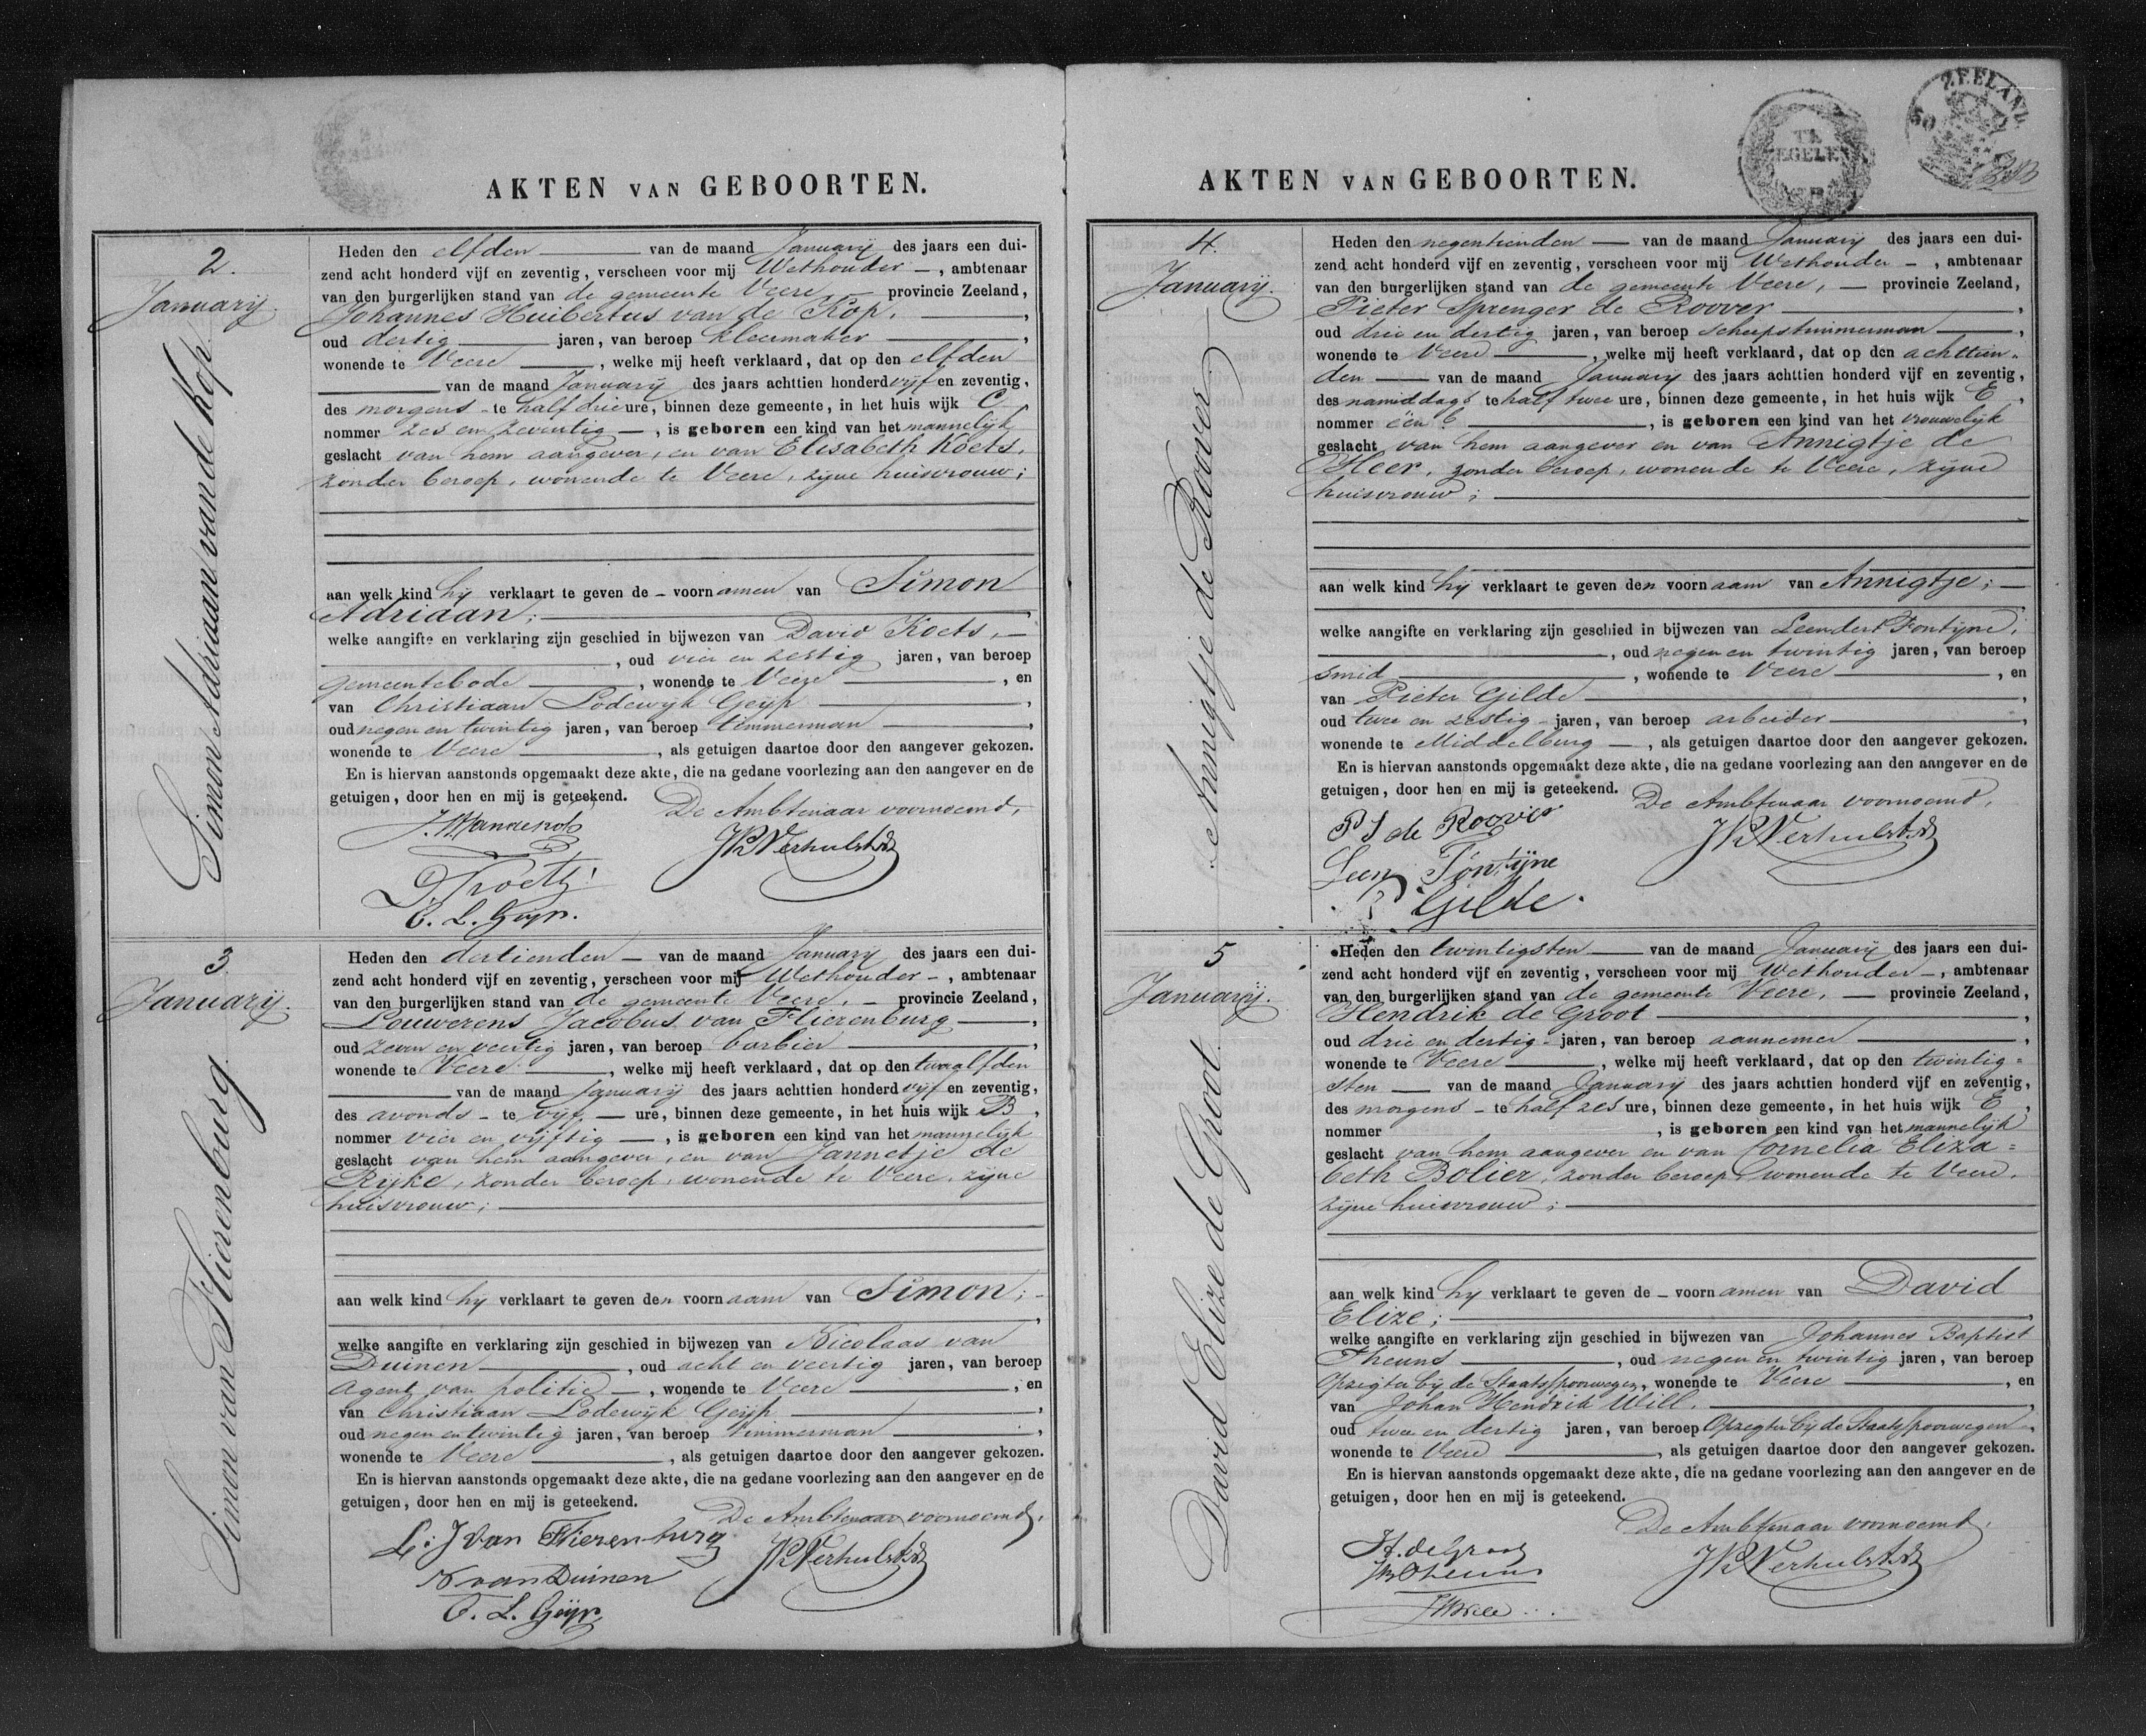 AKTEN VAN GEBOORTEN.
2.
Januarij.
Simon Adriaan van de Kop.
Heden den elfden van de maand Januarij des jaars een dui-
zend acht honderd vijf en zeventig, verscheen voor mij Wethouder, ambtenaar
van den burgerlijken stand van de gemeente Veere provincie Zeeland,
Johannes Huibertus van de Kop,
oud dertig jaren, van beroep kleermaker,
wonende te Veere, welke mij heeft verklaard, dat op den elfden
van de maand Januarij des jaars achttien honderd vijf en zeventig,
des morgens te half drie ure, binnen deze gemeente, in het huis wijk C
nommer zes en zeventig, is geboren een kind van het mannelijk
geslacht van hem aangever, en van Elisabeth Koets,
zonder beroep, wonende te Veere, zijne huisvrouw;
aan welk kind hij verklaart te geven de voornamen van Simon
Adriaan;
welke aangifte en verklaring zijn geschied in bijwezen van David Koets,
, oud vier en zestig jaren, van beroep
gemeentebode, wonende te Veere, en
van Christiaan Lodewijk Geijp,
oud negen en twintig jaren, van beroep timmerman,
wonende te Veere, als getuigen daartoe door den aangever gekozen.
En is hiervan aanstonds opgemaakt deze akte, die na gedane voorlezing aan den aangever en de
getuigen, door hen en mij is geteekend. De Ambtenaar voornoemd,
D Koets
C. L. Geijp.
3
Januarij.
Simon van Flierenburg
Heden den dertienden van de maand Januarij des jaars een dui-
zend acht honderd vijf en zeventig, verscheen voor mij Wethouder, ambtenaar
van den burgerlijken stand van de gemeente Veere, provincie Zeeland,
Louwerens Jacobus van Flierenburg,
oud zeven en veertig jaren, van beroep barbier,
wonende te Veere, welke mij heeft verklaard, dat op den twaalfden
van de maand Januarij des jaars achttien honderd vijf en zeventig,
des avonds te vijf ure, binnen deze gemeente, in het huis wijk B,
nommer vier en vijftig, is geboren een kind van het mannelijk
geslacht van hem aangever, en van Jannetje de
Rijke, zonder beroep, wonende te Veere, zijne
huisvrouw;
aan welk kind hij verklaart te geven den voornaam van Simon;
welke aangifte en verklaring zijn geschied in bijwezen van Nicolaas van
Duinen, oud acht en veertig jaren, van beroep
Agent van politie, wonende te Veere, en
van Christiaan Lodewijk Geijp,
oud negen en twintig jaren, van beroep timmerman,
wonende te Veere, als getuigen daartoe door den aangever gekozen.
En is hiervan aanstonds opgemaakt deze akte, die na gedane voorlezing aan den aangever en de
getuigen, door hen en mij is geteekend. De Ambtenaar voornoemd,
L. J van Flierenburg
N van Duinen
C. L. Geijp
AKTEN VAN GEBOORTEN.
ZEELAND
50
4.
Januarij.
Annigtje de Roover
Heden den negentienden van de maand Januarij des jaars een dui-
zend acht honderd vijf en zeventig, verscheen voor mij Wethouder, ambtenaar
van den burgerlijken stand van de gemeente Veere, provincie Zeeland,
Pieter Sprenger de Roover,
oud drie en dertig jaren, van beroep scheepstimmerman,
wonende te Veere, welke mij heeft verklaard, dat op den achttien-
den van de maand Januarij des jaars achttien honderd vijf en zeventig,
des namiddags te half twee ure, binnen deze gemeente, in het huis wijk E,
nommer één, is geboren een kind van het vrouwelijk
geslacht van hem aangever en van Annigtje de
Heer, zonder beroep, wonende te Veere, zijne
huisvrouw;
aan welk kind hij verklaart te geven den voornaam van Annigtje;
welke aangifte en verklaring zijn geschied in bijwezen van Leendert Fontijne,
, oud negen en twintig jaren, van beroep
smid, wonende te Veere, en
van Pieter Gilde,
oud twee en zestig jaren, van beroep arbeider,
wonende te Middelburg, als getuigen daartoe door den aangever gekozen.
En is hiervan aanstonds opgemaakt deze akte, die na gedane voorlezing aan den aangever en de
getuigen, door hen en mij is geteekend. De Ambtenaar voornoemd,
P S de Roover
Leen Fontijne
P Gilde
5
Januarij.
David Elize de Groot.
Heden den twintigsten van de maand Januarij des jaars een dui-
zend acht honderd vijf en zeventig, verscheen voor mij Wethouder, ambtenaar
van den burgerlijken stand van de gemeente Veere, provincie Zeeland,
Hendrik de Groot,
oud drie en dertig jaren, van beroep aannemer,
wonende te Veere, welke mij heeft verklaard, dat op den twintig=
sten van de maand Januarij des jaars achttien honderd vijf en zeventig,
des morgens te half zes ure, binnen deze gemeente, in het huis wijk E,
nommer, is geboren een kind van het mannelijk
geslacht van hem aangever en van Cornelia Eliza=
beth Bolier, zonder beroep, wonende te Veere,
zijne huisvrouw;
aan welk kind hij verklaart te geven de voornamen van David
Elize;
welke aangifte en verklaring zijn geschied in bijwezen van Johannes Baptist
Theuns, oud negen en twintig jaren, van beroep
Opzigter bij de Staatsspoorwegen, wonende te Veere, en
van Johan Hendrik Will,
oud twee en dertig jaren, van beroep Opzigter bij de Staatsspoorwegen,
wonende te Veere, als getuigen daartoe door den aangever gekozen.
En is hiervan aanstonds opgemaakt deze akte, die na gedane voorlezing aan den aangever en de
getuigen, door hen en mij is geteekend.
De Ambtenaar voornoemd,
H. de Groot